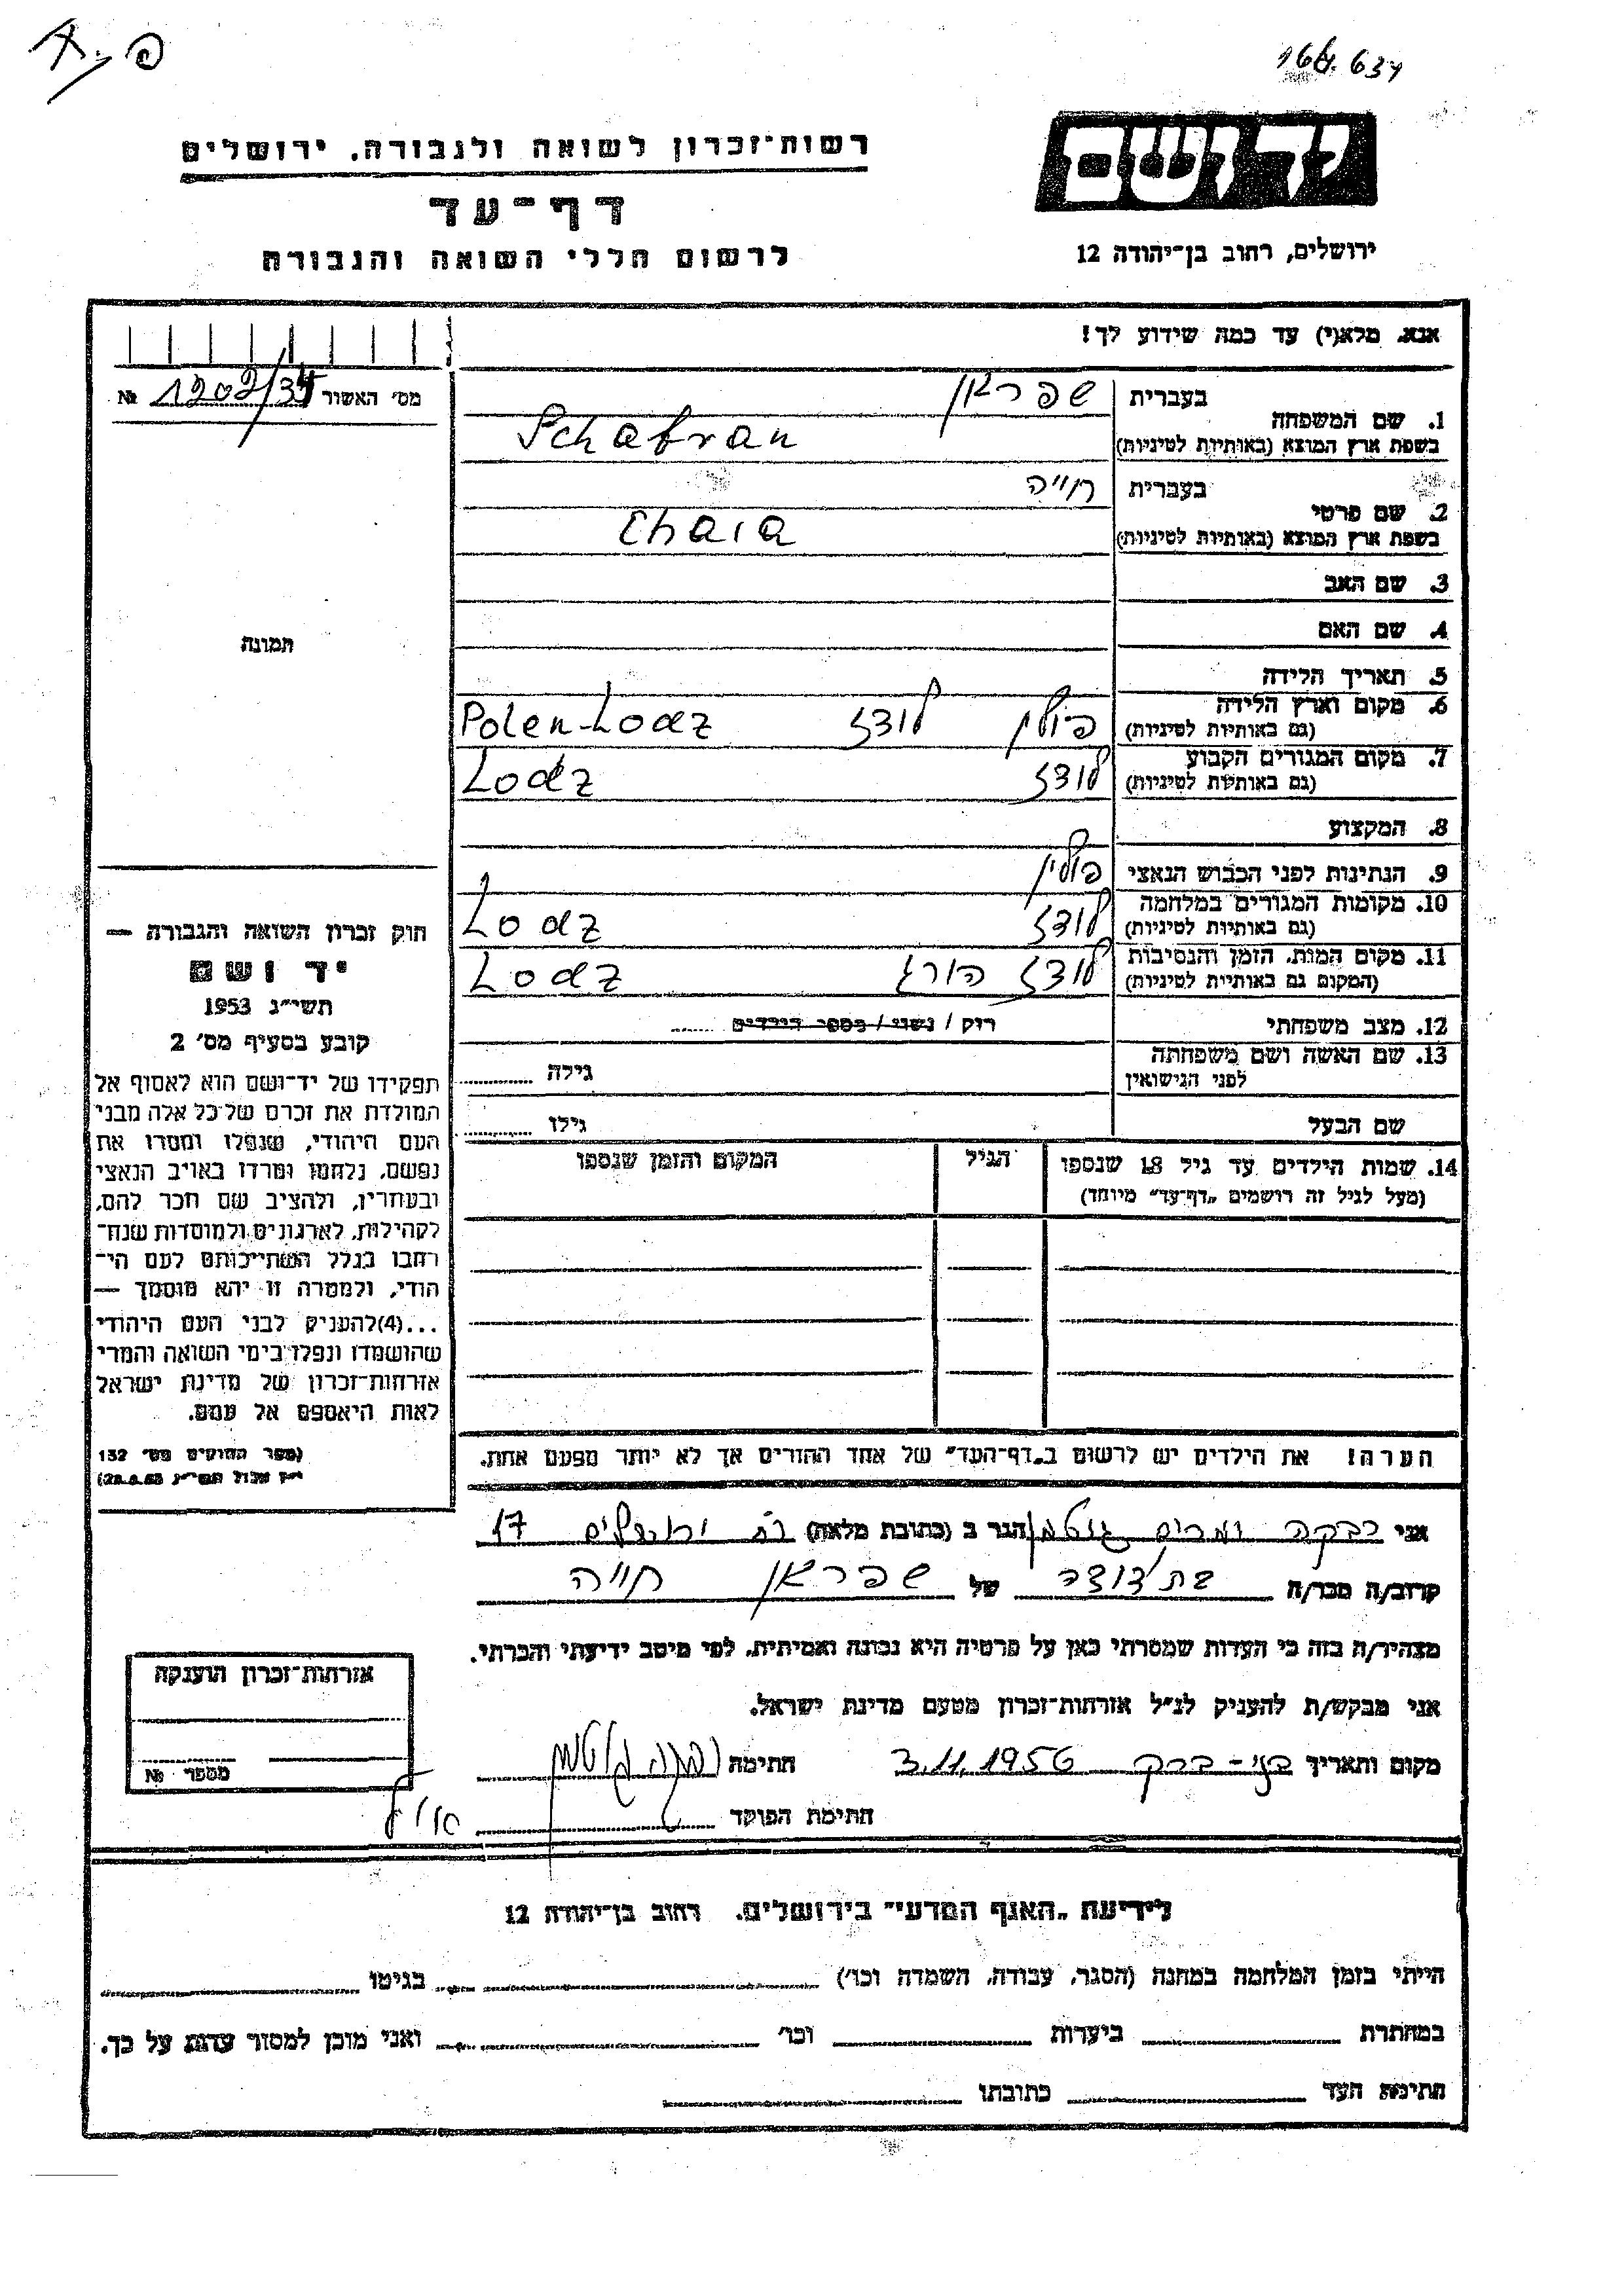 164.634
יד ושם
רשות־זכרון לשואה ולגבורה, ירושלים
דף־עד
לרשום חללי השואה והגבורה
ירושלים, רחוב בן־יהודה 12
אנא, מלא(י) עד כמה שידוע לך!
מס׳ האשור 1202/34 №
1. שם המשפחה
בעברית שפראן
בשפת ארץ המוצא (באותיות לטיניות) Schafran
2. שם פרטי
בעברית חייה
בשפת ארץ המוצא (באותיות לטיניות) Chaia
3. שם האב
4. שם האם
תמונה
5. תאריך הלידה
6. מקום וארץ הלידה
(גם באותיות לטיניות) פולין לודז Polen-Lodz
7. מקום המגורים הקבוע
(גם באותיות לטיניות) לודז Lodz
8. המקצוע
9. הנתינות לפני הכבוש הנאצי פולין
10. מקומות המגורים במלחמה
(גם באותיות לטיניות) לודז Lodz
11. מקום המות, הזמן והנסיבות
(המקום גם באותיות לטיניות) לודז הורג Lodz
12. מצב משפחתי רוק / נשוי / מספר הילדים
13. שם האשה ושם משפחתה
לפני הנישואין גילה
שם הבעל גילו
14. שמות הילדים עד גיל 18 שנספו הגיל המקום והזמן שנספו
(מעל לגיל זה רושמים „דף־עד״ מיוחד)
הערה! את הילדים יש לרשום ב„דף־העד״ של אחד ההורים אך לא יותר מפעם אחת.
חוק זכרון השואה והגבורה —
יד ושם
תשי״ג 1953
קובע בסעיף מס׳ 2
תפקידו של יד־ושם הוא לאסוף אל
המולדת את זכרם של כל אלה מבני
העם היהודי, שנפלו ומסרו את
נפשם, נלחמו ומרדו באויב הנאצי
ובעוזריו, ולהציב שם וזכר להם,
לקהילות, לארגונים ולמוסדות שנח־
רבו בגלל השתייכותם לעם הי־
הודי, ולמטרה זו יהא מוסמך —
...(4)להעניק לבני העם היהודי
שהושמדו ונפלו בימי השואה והמרי
אזרחות־זכרון של מדינת ישראל
לאות היאספם אל עמם.
(ספר החוקים מס׳ 132
י״ז אלול תשי״ג 28.8.53)
אני רבקה ומרים גוטמן הגר ב (כתובת מלאה) 17
קרוב/ה מכר/ה בת דודה של שפראן חייה
מצהיר/ה בזה כי העדות שמסרתי כאן על פרטיה היא נכונה ואמיתית, לפי מיטב ידיעתי והכרתי.
אני מבקש/ת להעניק לנ״ל אזרחות־זכרון מטעם מדינת ישראל.
מקום ותאריך בני-ברק 3.11.1956 חתימה רבקה גוטמן
חתימת הפוקד
אזרחות־זכרון הוענקה
מספר №
לידיעת „האגף המדעי״ בירושלים, רחוב בן־יהודה 12
הייתי בזמן המלחמה במחנה (הסגר, עבודה, השמדה וכו׳) בגיטו
במחתרת ביערות וכו׳ ואני מוכן למסור עדות על כך.
חתימת העד כתובתו